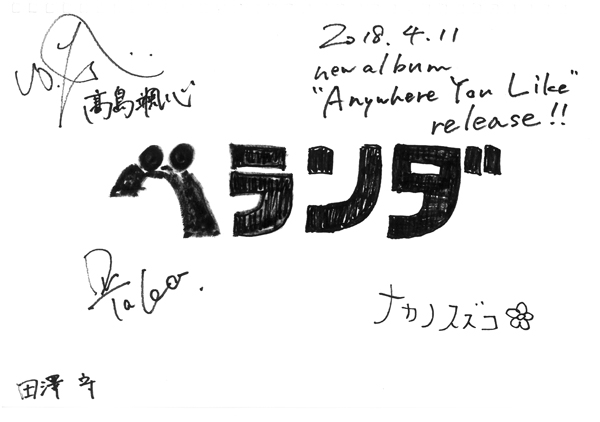 髙島颯心
2018.4.11
new album
"Anywhere You Like"
release!!
ベランダ
Tako.
ナカノスズコ
田澤守